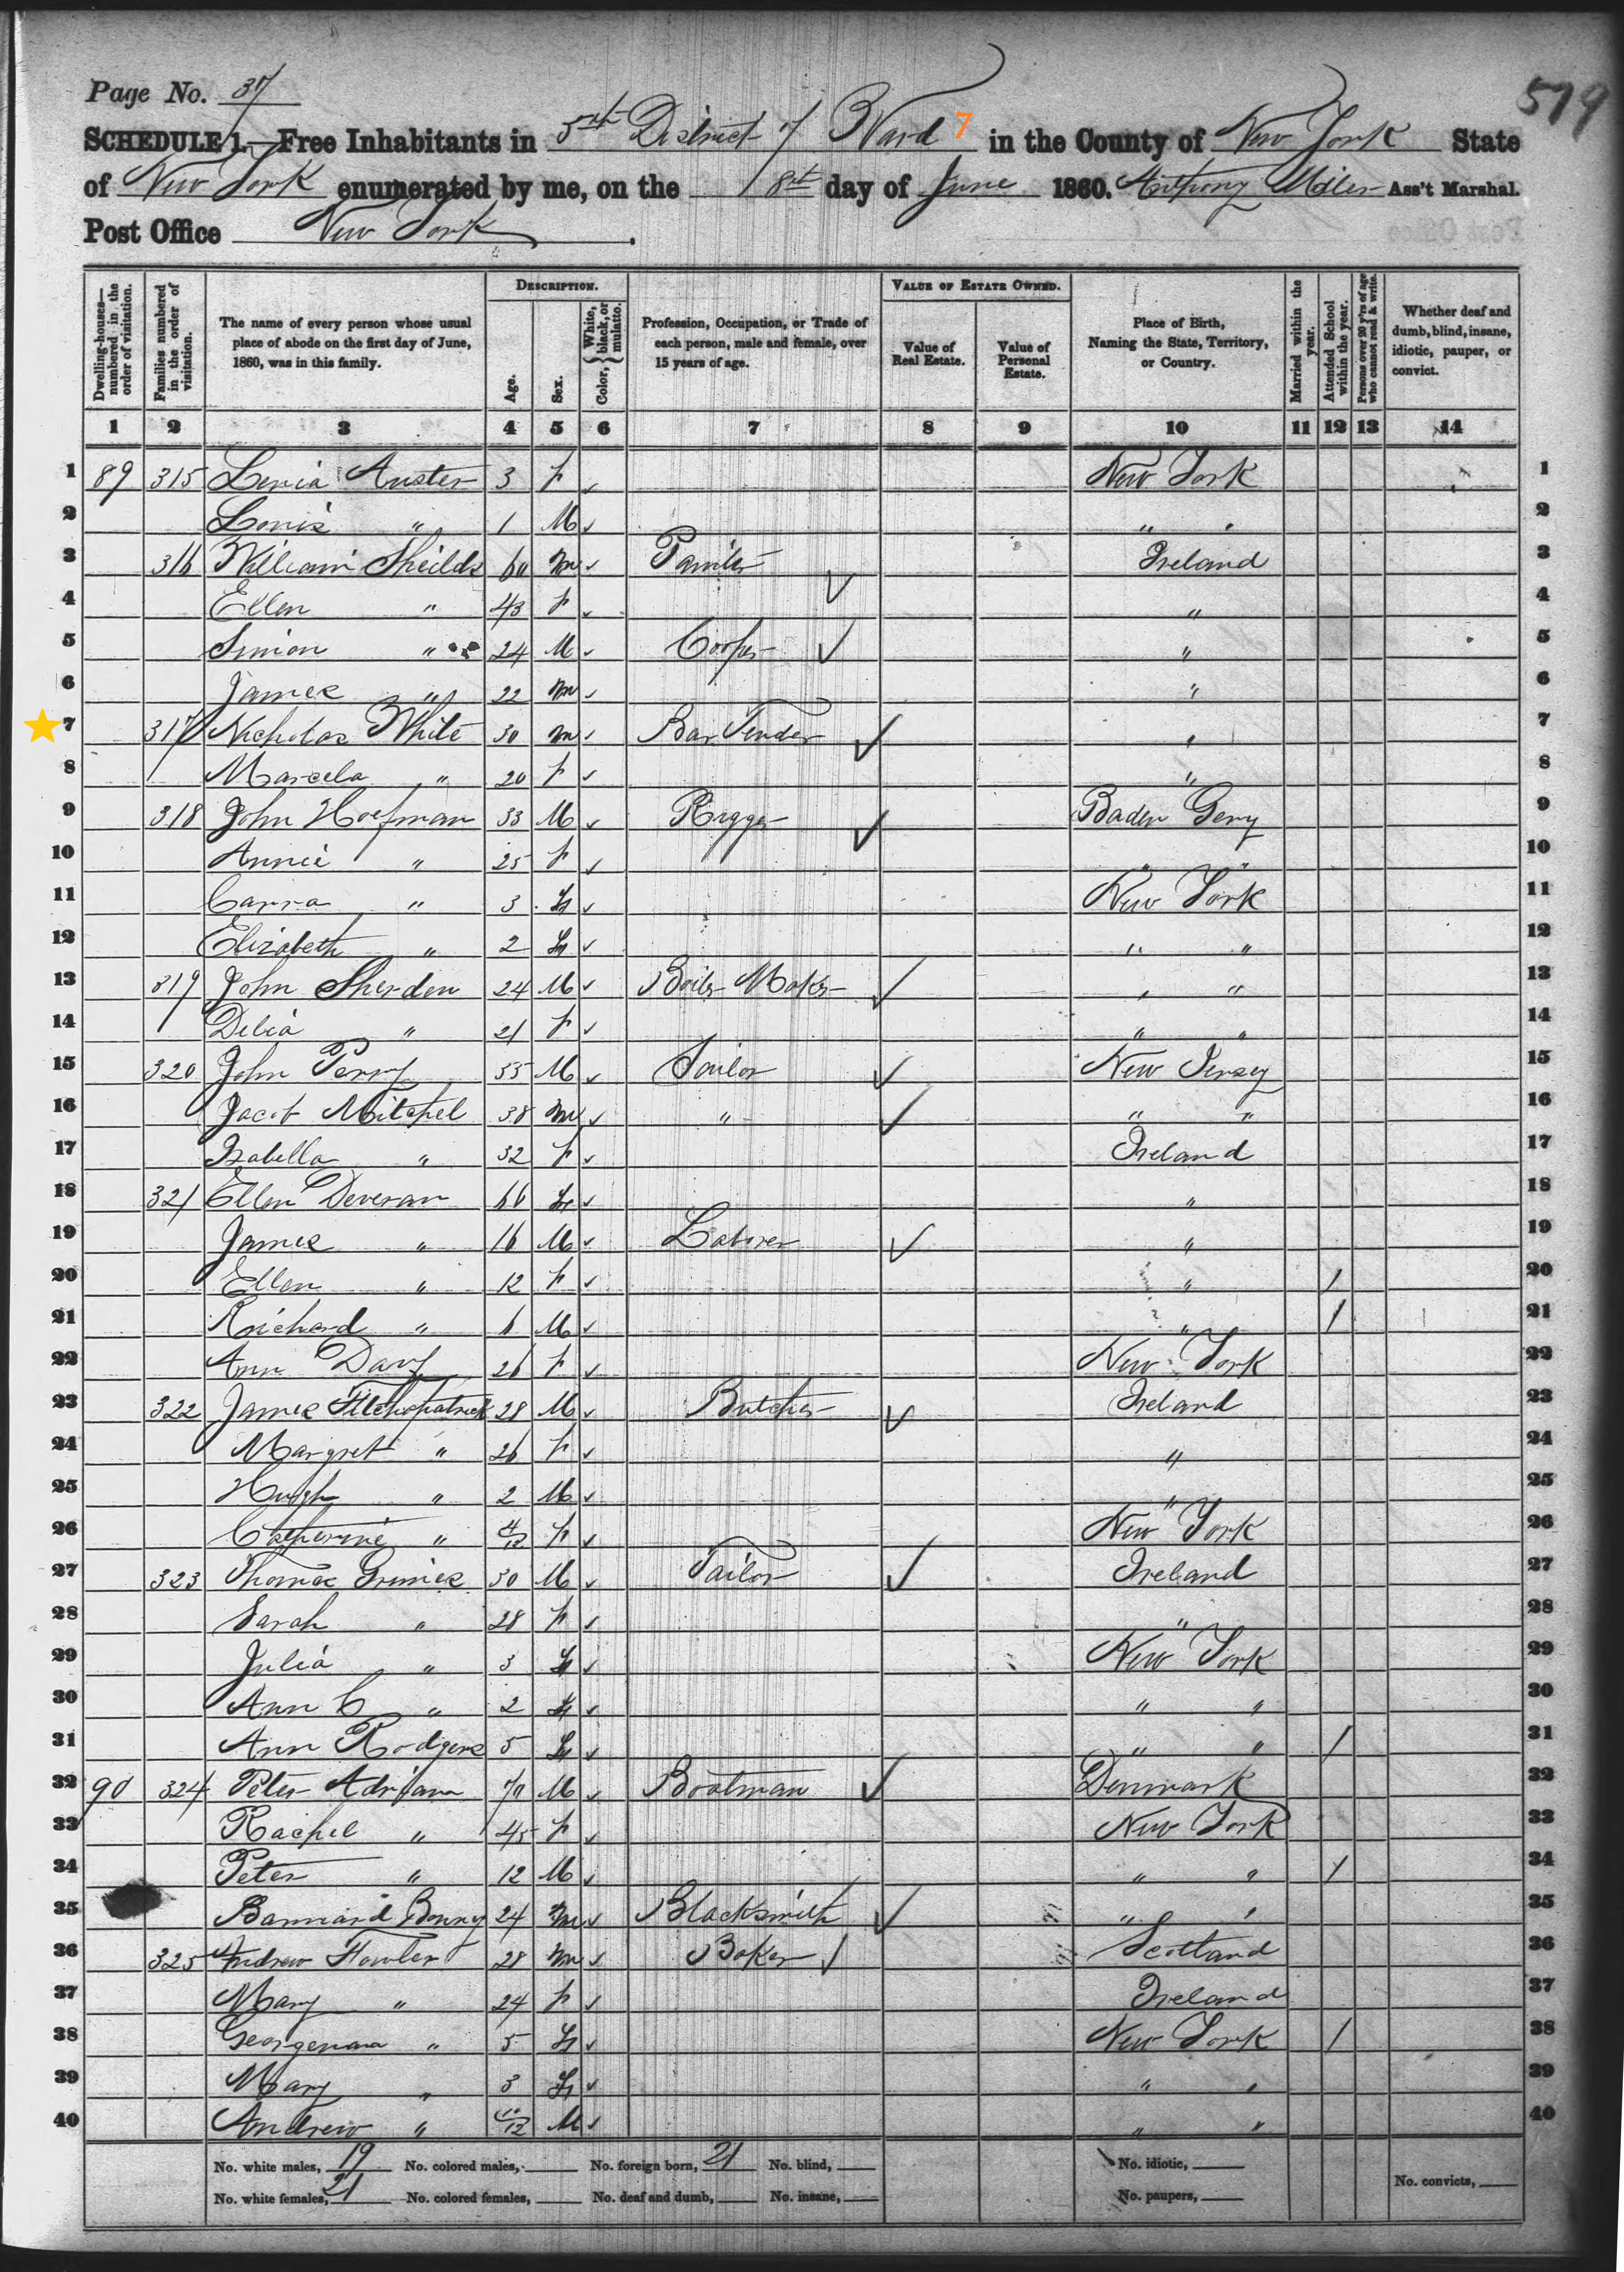 Page No. 37
579
SCHEDULE 1.—Free Inhabitants in 5th District of Ward 7 in the County of New York State
of New York enumerated by me, on the 8th day of June 1860. Anthony Miller Ass't Marshal.
Post Office New York.
Dwelling-houses—numbered in the order of visitation.
Families numbered in the order of visitation.
The name of every person whose usual place of abode on the first day of June, 1860, was in this family.
DESCRIPTION.
Age.
Sex.
Color, { White, black, or mulatto.
Profession, Occupation, or Trade of each person, male and female, over 15 years of age.
VALUE OF ESTATE OWNED.
Value of Real Estate.
Value of Personal Estate.
Place of Birth, Naming the State, Territory, or Country.
Married within the year.
Attended School within the year.
Persons over 20 y'rs of age who cannot read & write.
Whether deaf and dumb, blind, insane, idiotic, pauper, or convict.
1 2 3 4 5 6 7 8 9 10 11 12 13 14
1 89 315 Auster 3 F New York 1
2 Louis " 1 M " " 2
3 316 William Sheilds 60 M Painter Ireland 3
4 Ellen " 43 F " 4
5 Simon " 24 M Cooper " 5
6 James " 22 M " 6
7 317 Nicholas White 30 M Bar Tender " 7
8 Marcela " 20 F " 8
9 318 John Hoefman 33 M Rigger Baden Gery 9
10 Annie " 25 F " " 10
11 Carra " 3 F New York 11
12 Elizabeth " 2 F " " 12
13 319 John Sherden 24 M Boiler Maker " " 13
14 Delia " 21 F " " 14
15 320 John Perry 35 M Sailor New Jersey 15
16 Jacob Mitchel 38 M " " " 16
17 Isabella " 32 F Ireland 17
18 321 Ellen Deveran 66 F " 18
19 James " 16 M Laborer " 19
20 Ellen " 12 F " / 20
21 Richard " 6 M " / 21
22 Ann Davy 26 F New York 22
23 322 James 28 M Butcher Ireland 23
24 Margret " 26 F " 24
25 Hugh " 2 M " 25
26 Catherine " 4/12 F New York 26
27 323 Thomas Grimes 30 M Tailor Ireland 27
28 Sarah " 28 F " 28
29 Julia " 3 F New York 29
30 Ann C " 2 F " " 30
31 Ann Rodgers 5 F " " / 31
32 90 324 Peter 70 M Boatman Denmark 32
33 Rachel " 45 F New York 33
34 Peter " 12 M " " / 34
35 Barnard Bonny 24 M Blacksmith " " 35
36 325 Andrew Fowler 28 M Baker Scotland 36
37 Mary " 24 F Ireland 37
38 Georgenna " 5 F New York / 38
39 Mary " 3 F " " 39
40 Andrew " 10/12 M " " 40
No. white males, 19 No. colored males, No. foreign born, 21 No. blind, No. idiotic,
No. white females, 21 No. colored females, No. deaf and dumb, No. insane, No. paupers, No. convicts,